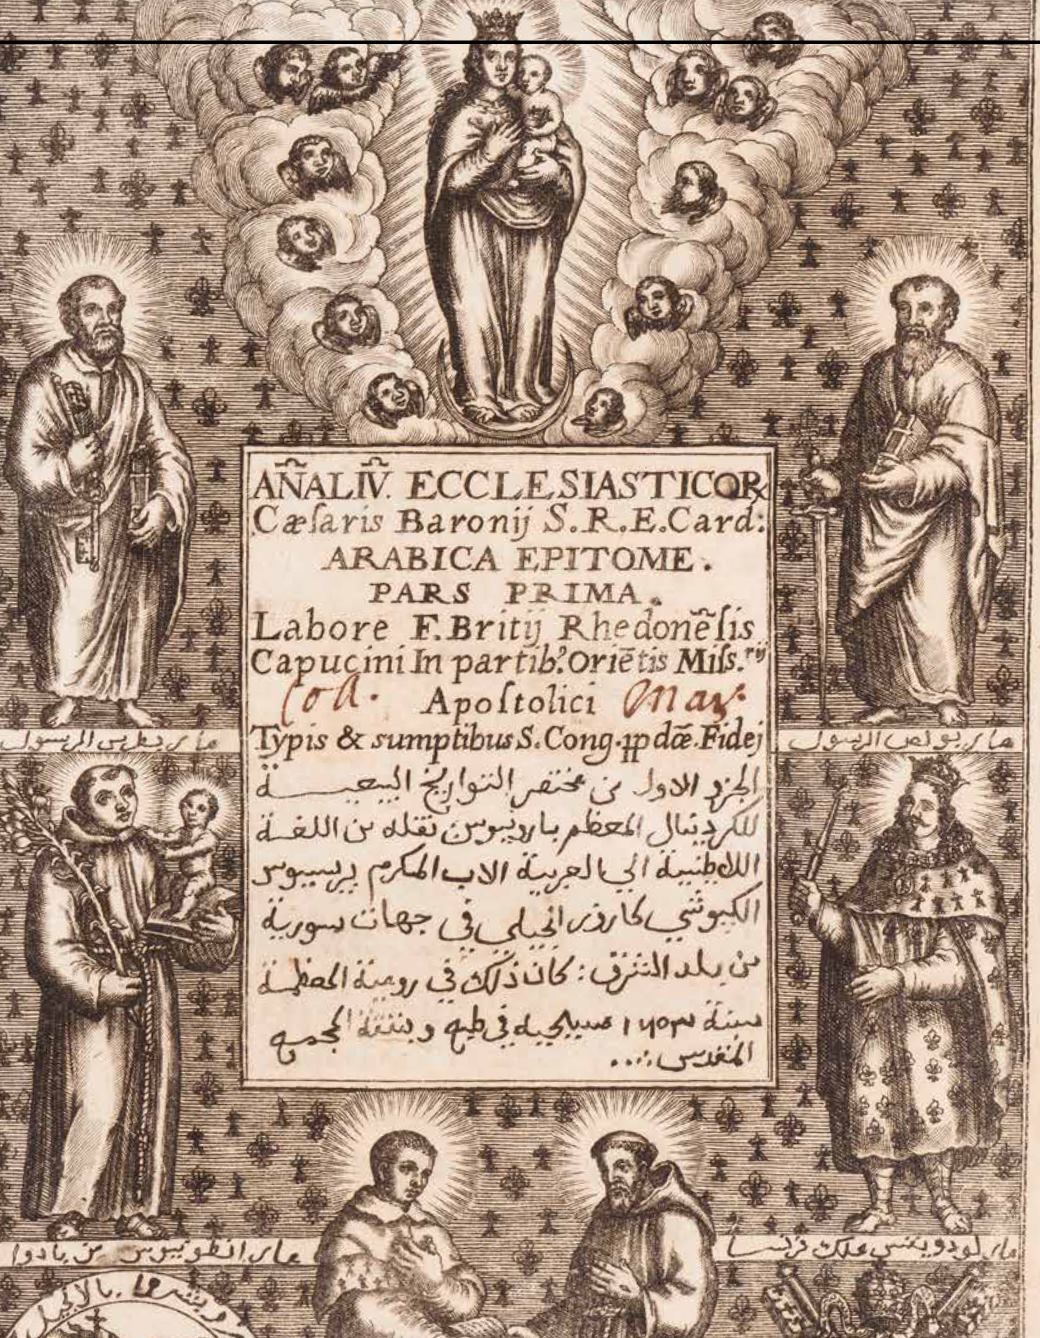 AÑALIṼ. ECCLESIASTICOR
Cæſaris Baronij S.R.E.Card:
ARABICA EPITOME.
PARS PRIMA.
Labore F.Britij Rhedonẽſis
Capucini In partib⁹. Oriẽtis Miſſ.rij
Coll. Apoſtolici Max.
Typis & sumptibus S.Cong.ꝓpdæ.Fidej
ماري بطرس الرسول
ماري بولص الرسول
الجزو الاول من مختصر التواريخ البيعية
للكردينال المعظم بارونيوس نقله من اللغة
اللاطينية الي العربية الاب المكرم بريسيوس
الكبوتشي الكاروز الانجيلي في جهات سورية
من بلد الشرق: كان ذلك في رومية العظمة
سنة ١٦٥٣ مسيحية في طبع و بنفقة المجمع
المقدس
ماري انطونيوس من بادوا
ماري لودويغس ملك فرنسا
بالانجيل